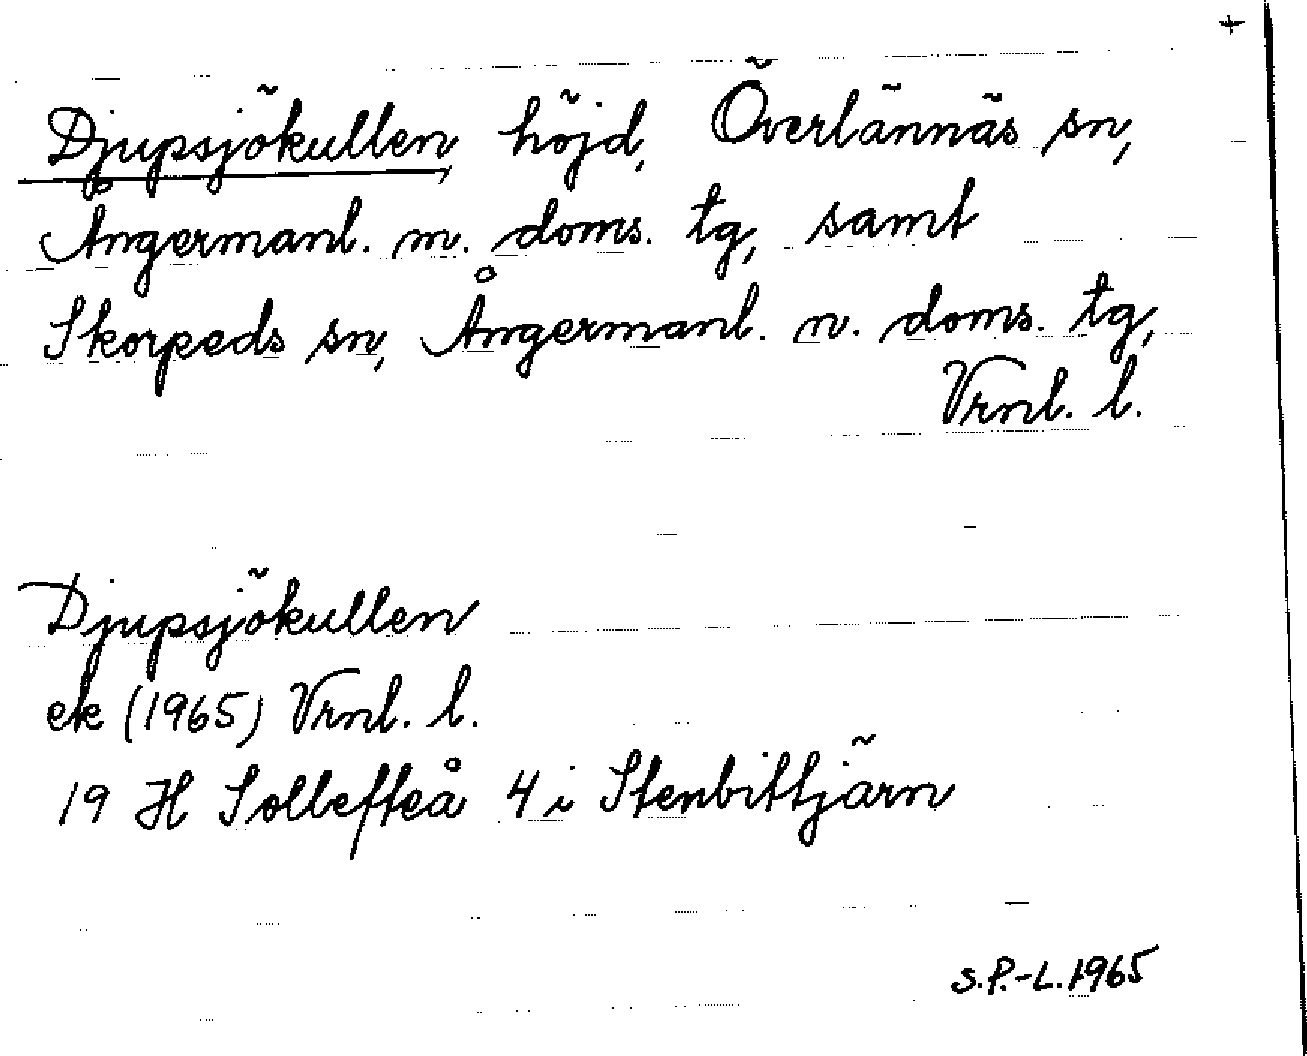 +
Djupsjökullen, höjd, Överlännäs sn,
Ångermanl. m. doms. tg, samt
Skorpeds sn, Ångermanl. n. doms. tg,
Vrnl. l.
Djupsjökullen
ek (1965) Vrnl. l.
19 H Sollefteå 4 i Stenbittjärn
S.P.-L. 1965